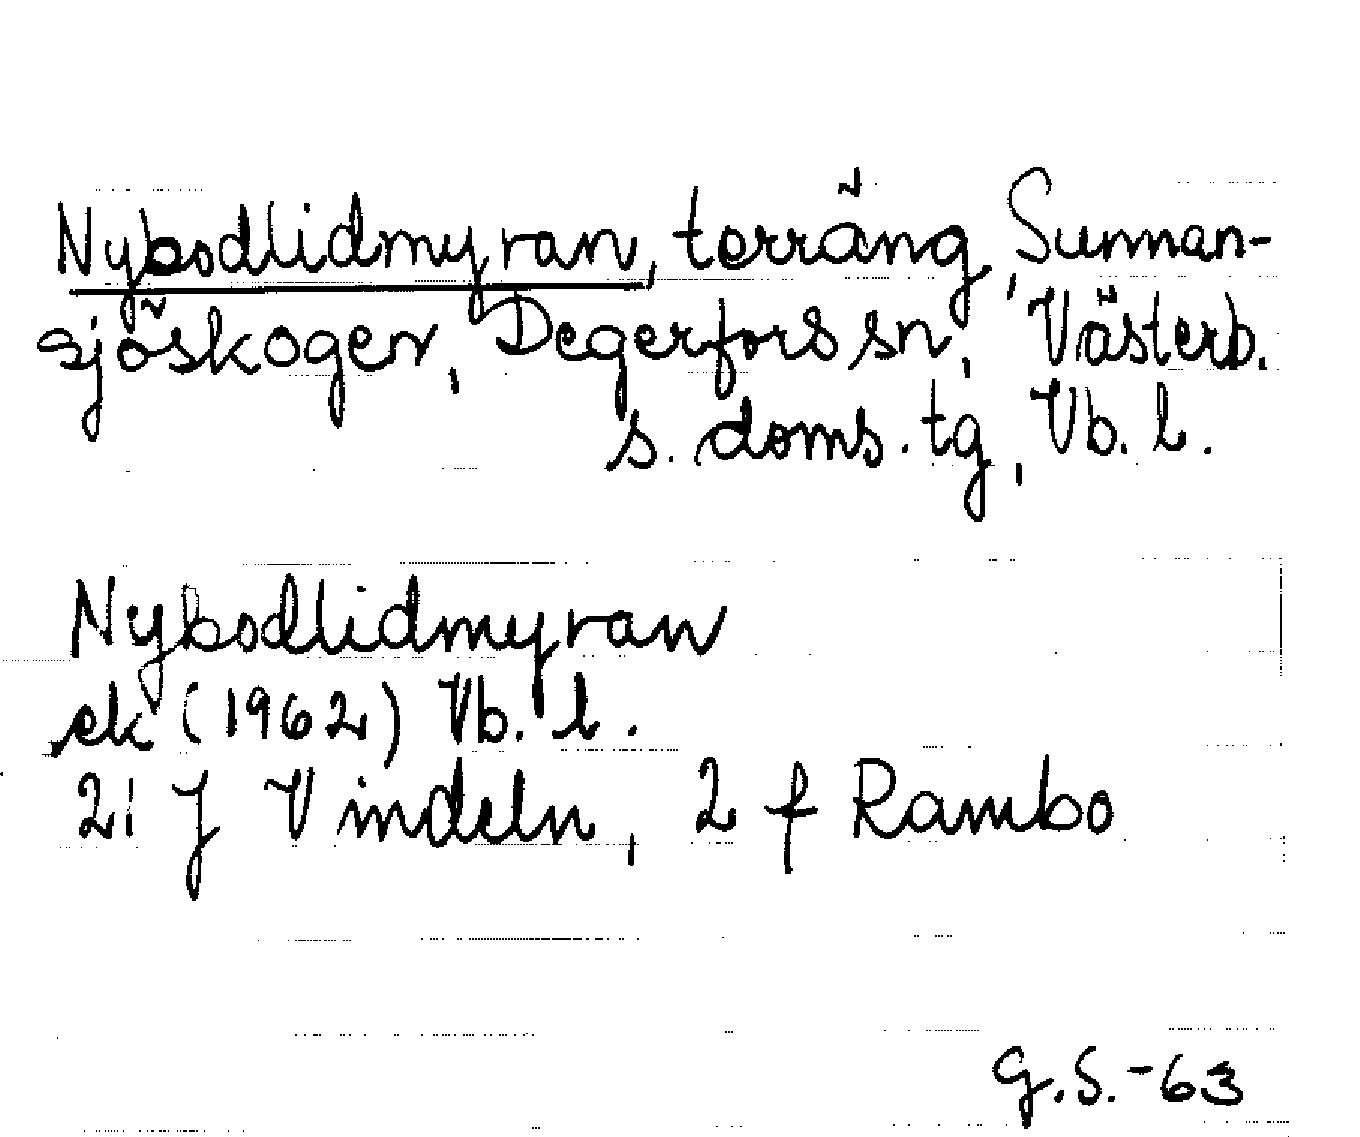 Nybodlidmyran, terräng, Sunnan-
sjöskogen, Degerfors sn, Västerb.
s. doms. tg, Vb. l.
Nybodlidmyran
ek (1962) Vb. l.
21 J Vindeln, 2 f Rambo
G.S.-63